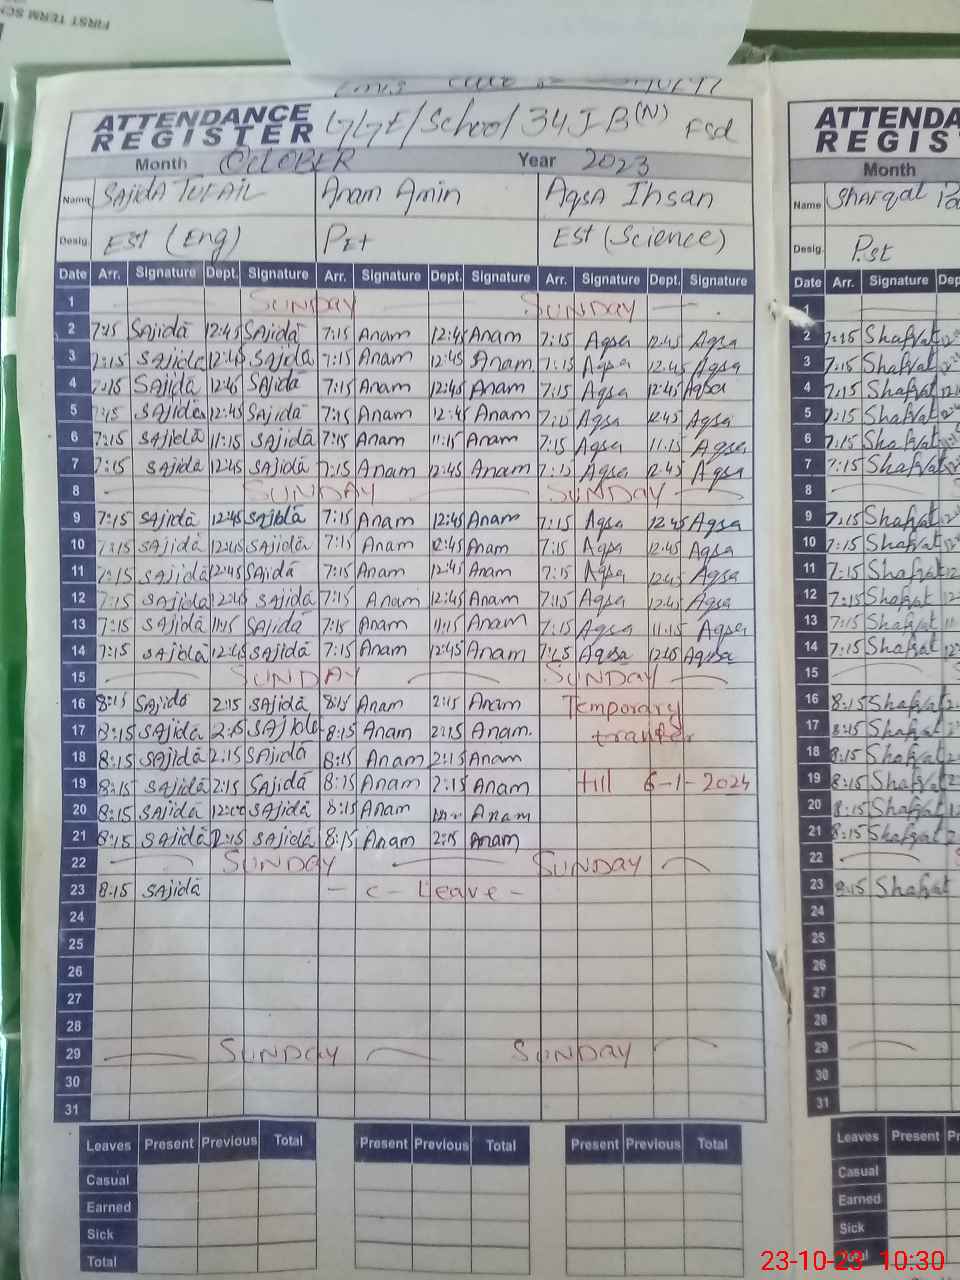 FIRST TERM SCH
ATTENDANCE REGISTER GGE/School 34 J-B (N) Fsd
Month OCTOBER Year 2023
Name SAJIDA TUFAIL Anam Amin Aqsa Ihsan
Desig. EST (Eng) PET EST (Science)
Date Arr. Signature Dept. Signature Arr. Signature Dept. Signature Arr. Signature Dept. Signature
1 SUNDAY SUNDAY
2 7:15 SAjidā 12:45 SAjidā 7:15 Anam 12:45 Anam 7:15 Aqsa 12:45 Aqsa
3 7:15 SAjida 12:45 SAjida 7:15 Anam 12:45 Anam 7:15 Aqsa 12:45 Aqsa
4 7:15 SAjidā 12:45 SAjidā 7:15 Anam 12:45 Anam 7:15 Aqsa 12:45 Aqsa
5 7:15 SAjida 12:45 SAjidā 7:15 Anam 12:45 Anam 7:15 Aqsa 12:45 Aqsa
6 7:15 SAjidā 11:15 SAjidā 7:15 Anam 11:15 Anam 7:15 Aqsa 11:15 Aqsa
7 7:15 SAjidā 12:45 SAjidā 7:15 Anam 12:45 Anam 7:15 Aqsa 12:45 Aqsa
8 SUNDAY SUNDAY
9 7:15 SAjidā 12:45 SAjidā 7:15 Anam 12:45 Anam 7:15 Aqsa 12:45 Aqsa
10 7:15 SAjidā 12:45 SAjidā 7:15 Anam 12:45 Anam 7:15 Aqsa 12:45 Aqsa
11 7:15 SAjidā 12:45 SAjidā 7:15 Anam 12:45 Anam 7:15 Aqsa 12:45 Aqsa
12 7:15 SAjidā 12:45 SAjidā 7:15 Anam 12:45 Anam 7:15 Aqsa 12:45 Aqsa
13 7:15 SAjidā 11:15 SAjidā 7:15 Anam 11:15 Anam 7:15 Aqsa 11:15 Aqsa
14 7:15 SAjidā 12:45 SAjidā 7:15 Anam 12:45 Anam 7:15 Aqsa 12:45 Aqsa
15 SUNDAY SUNDAY
16 8:15 SAjida 2:15 SAjidā 8:15 Anam 2:15 Anam Temporary
17 8:15 SAjidā 2:15 SAjida 8:15 Anam 2:15 Anam. tranfer
18 8:15 SAjidā 2:15 SAjidā 8:15 Anam 2:15 Anam
19 8:15 SAjidā 2:15 SAjidā 8:15 Anam 2:15 Anam till 6-1-2024
20 8:15 SAjidā 12:00 SAjidā 8:15 Anam Anam
21 8:15 SAjidā 2:15 SAjidā 8:15 Anam 2:15 Anam
22 SUNDAY SUNDAY
23 8:15 SAjidā - C - Leave -
24
25
26
27
28
29 SUNDAY SUNDAY
30
31
Leaves Present Previous Total Present Previous Total Present Previous Total
Casual
Earned
Sick
Total
ATTENDA
REGIS
Month
Name Shafqat
Desig. Pst
Date Arr. Signature Dep
1
2 7:15 Shafqat
3 7:15 Shafqat
4 7:15 Shafqat
5 7:15 Shafqat
6 7:15 Shafqat
7 7:15 Shafqat
8
9 7:15 Shafqat
10 7:15 Shafqat
11 7:15 Shafqat
12 7:15 Shafqat
13 7:15 Shafqat
14 7:15 Shafqat
15
16 8:15 Shafqat
17 8:15 Shafqat
18 8:15 Shafqat
19 8:15 Shafqat
20 8:15 Shafqat
21 8:15 Shafqat
22
23 8:15 Shafqat
24
25
26
27
28
29
30
31
Leaves Present Pr
Casual
Earned
Sick
Total
23-10-23 10:30